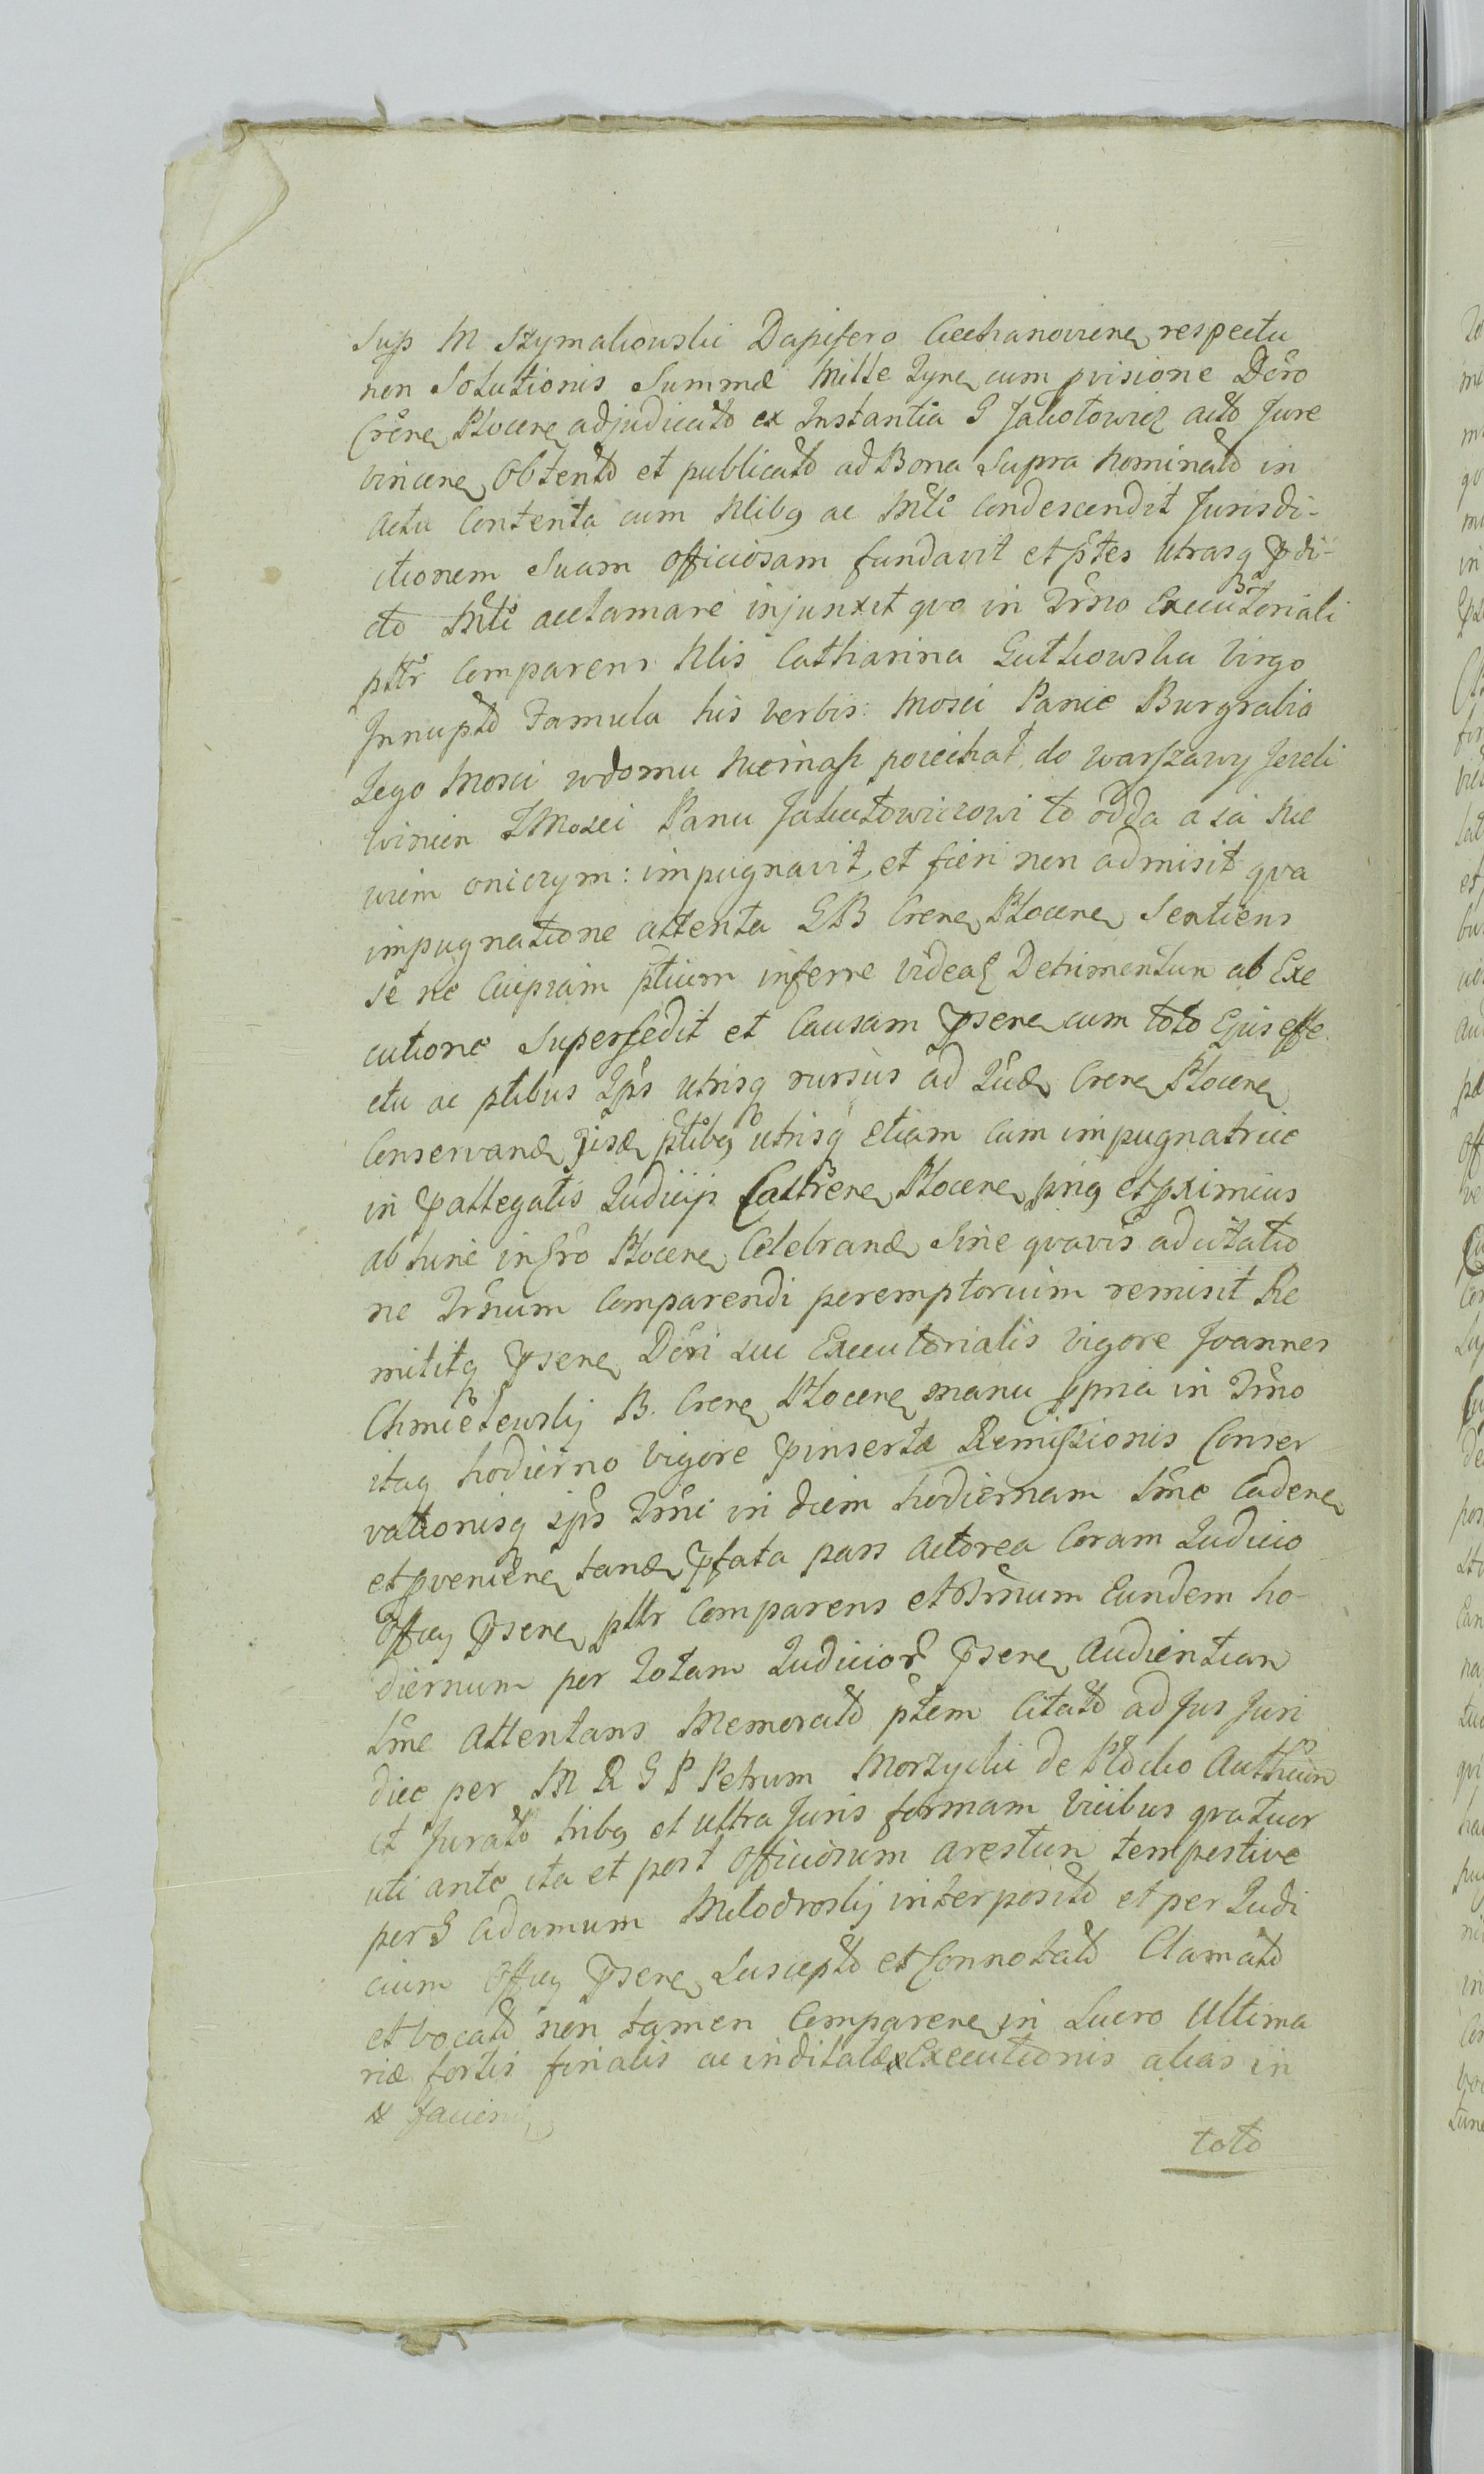 Sup M Szymakowski Dapifero Ciechanoviene respectu
non Solutionis Summæ Mille Tyne cum pvisione Dcro
Crene Plocene adjudicato ex Instantia G Jakotowicz acto Jure
vincene Obtento et publicato ad Bona Supra Nominato in
actu Contenta cum Nlibq ac Mnli Condescendit Jurisdi-
ctionem Suam officiosam fundavit et ptes utrasq pdi-
cto Mnli acclamare injunxit qvo in Trno Executoriali
pltr Comparens Nlis Catharina Gutkowska Virgo
Innupto Famula his Verbis: Mosci Panie Burgrabia
Jego Mosci w domu Niemasz poiechał do Warszawy Jezeli
winien JMosci Panu Jakutowiczowi to odda a ia Nie
wiem oniczym: impugnavit, et fieri non admisit qva
impugnatione attenta GB Crene Plocene Sentiens
Se ne Cuipiam ptium inferre videat Detrimentum ab Exe
cutione Supersedit et Causam psene cum toto Ejus effe
ctu ac ptibus Ips utrisq rursus ad Jud Crene Plocene
Conservand ptibq utrisq etiam Cum impugnatrice
in pallegatis Judicijs Castrene Plocene priq et pximius
ab hinc in Gro Plocene Celebrand Sine qvavis adcitatio
ne Trnum Comparendi peremptorium remisit Re
mititq psene Dcri sui Executorialis vigore Joannes
Chmielewskij B. Crene Plocene manu ppria in Trno
itaq hodierno Vigore pinsertæ Remissionis Conser
vationisq ips Trni in diem hodiernam Lme Cadene
et pveniene tand pfata pars Actorea Coram Judicio
Officij psene pltr Comparens et Trnum Eundem ho-
diernum per Totam Judicior psene Audientiam
Lme Attentans Memorato ptem Citato ad Jus Juri
dice per M R G P Petrum Morzycki de Plocko Authen
et Jurato tribq et ultra Juris formam Vicibus qvatuor
uti ante ita et post Officiosum arestum tempestive
per G Adamum Młodroskij interposito et per Judi
cium Officij psene Suscepto et Connotato Clamato
et vocato non tamen Comparene in Lucro Ultima
riæ fortis finalis ac inditatæ x Executionis alias in
x faciend
toto